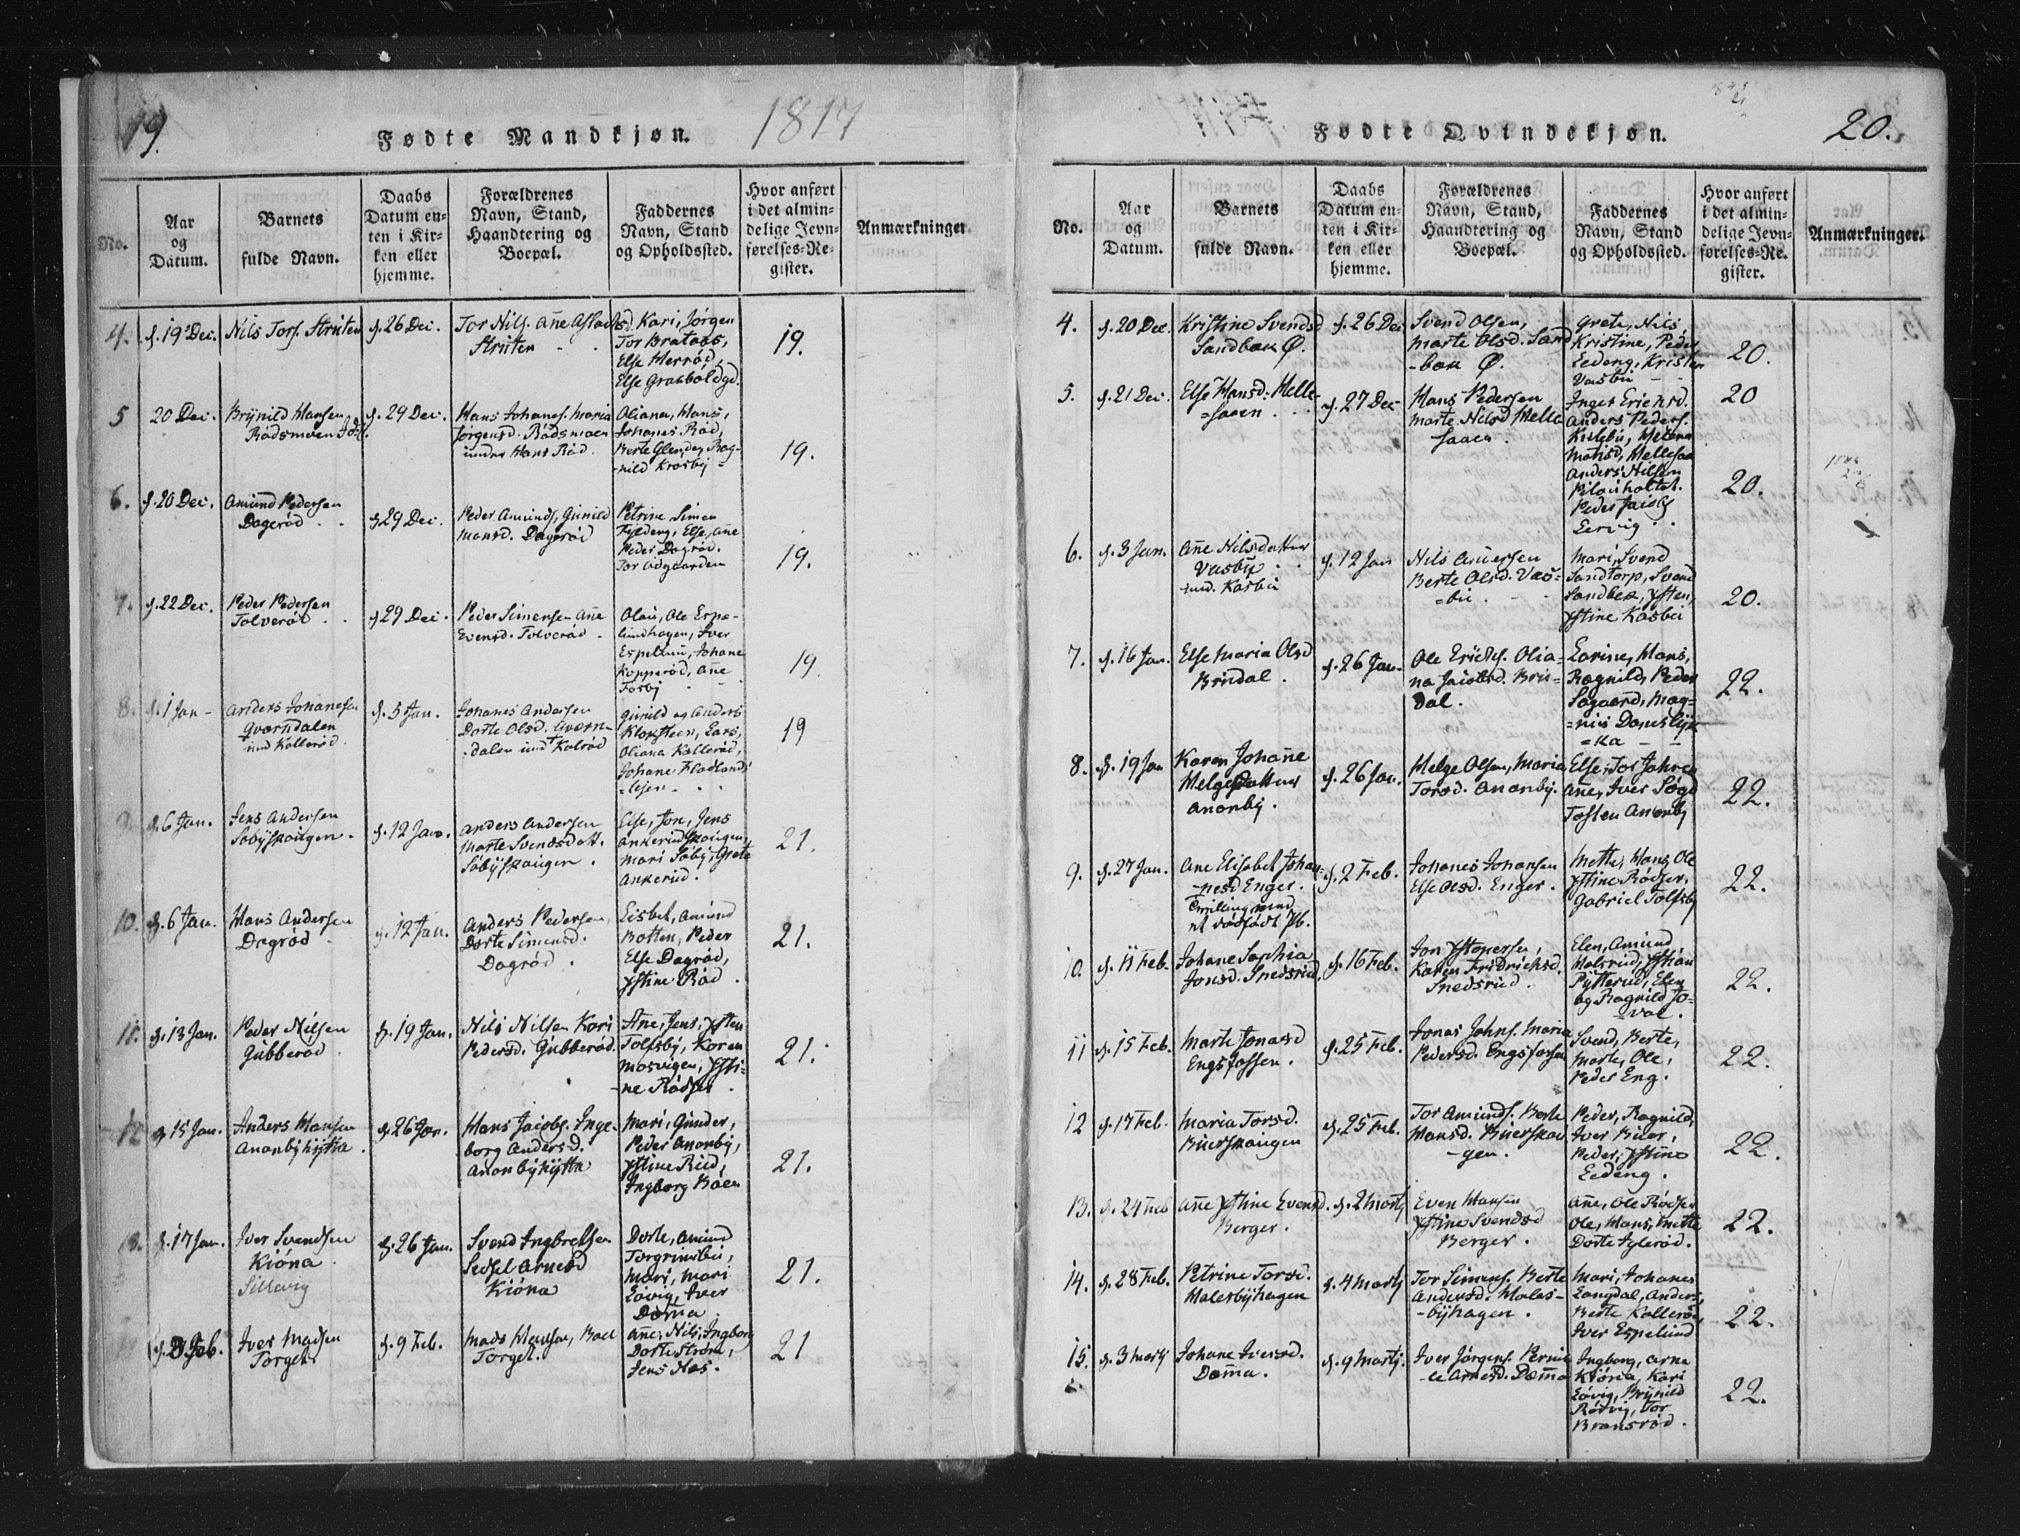 19.
Fødte Mandkjøn.
1817
No.
Aar
og
Datum.
Barnets
fulde Navn.
Daabs
Datum en-
ten i Kir-
ken eller
hjemme.
Forældrenes
Navn, Stand,
Haandtering og
Boepæl.
Faddernes
Navn, Stand
og Opholdssted.
Hvor anført
i det almin-
delige Jevn-
førelses-Re-
gister.
Anmærkninger
4. f. 19 Dec. Nils Tors. Strüten f. 26 Dec.
Tor Nils. Añe
Strüten
Kari, Jørgen
Tor Brataas,
Else Herrød,
Else
19.
5 20 Dec. Brÿnild Hansen
f. 29 Dec.
Hans Johans. Maria
Jørgensd. Rødsmoen
under Hans Rød.
Oliana, Hans,
Johanes Rød,
Berte Glende, Rag-
nild Krosbÿ
19.
6. f. 20 Dec. Amünd Pedersen
Dagrød
f. 29 Dec.
Peder Amünds, Günild
Hansd. Dagrød
Petrine, Simen
Else, Añe
Peder Dagrød.
Tor Odgaarden
19.
7. f. 22 Dec. Peder Pedersen
Tolverød
f. 29 Dec.
Peder Simensen Añe
Evensd. Tolverød
Olaü, Ole Espe-
lündhagen, Iver
Espelünd, Johane
Kopperød, Añe
Fosbÿ
19
8. f. 1 Jan Anders Johanesen
Qværndalen
und Kollerød
f. 5 Jan.
Johanes Andersen
Dorte Olsd. Qværn-
dalen und Kolrød
Günild og Anders
Klopsteen, Lars,
Oliana Kollerød,
Johane
19
9. f. 6 Jan. Jens Andersen
Søbÿskoügen
f. 12 Jan.
Anders Andersen
Marte Svendsdatt.
Søbÿskoügen.
Else, Jon, Jens
Ankerüdskoügen,
Mari Søbÿ, Grete
Ankerüd.
21.
10. f. 6 Jan. Hans Andersen
Dagrød
f. 12 Jan.
Anders Pedersen
Dorte Simensd.
Dagrød.
Lisbet, Amünd
Botten, Peder
Else Dagrød,
Ystine Rød
21.
11. f. 13 Jan. Peder Nilsen
Gübberød
f. 19 Jan.
Nils Nilsen Kari
Pedersd. Gübberød.
Añe, Jens, Ysten
Tolfsbÿ, Koren
Mosvigen, Ysti-
ne Rødser.
21.
12 f. 15 Jan. Anders Hansen
Ananbÿhÿtta
f. 26 Jan.
Hans Jacobs. Inge-
borg Andersd.
Ananbÿhÿtta
Mari, Günder,
Peder Ananbÿ,
Ystine Rüd,
Ingborg Böen
21.
13. f. 17 Jan. Iver Svendsen
Kiöna
Sillevig
f. 26 Jan.
Svend Ingbretsen
Sidsel Arnesd
Kiöna
Dorte, Amünd
Torgrimsbü,
Mari, Mari
Løvig, Iver
Dam̃a
21.
f. 3 Feb. Iver Madsen
Torget.
f. 9 Feb.
Mads Hansen, Boel
Torget.
Añe, Nils, Ingborg
Dorte Strøm,
Jens Næs.
21
20.
Fødte Qvindekjøn.
No.
Aar
og
Datum.
Barnets
fulde Navn.
Daabs
Datum en-
ten i Kir-
ken eller
hjemme.
Forældrenes
Navn, Stand,
Haandtering og
Boepæl.
Faddernes
Navn, Stand
og Opholdssted.
Hvor anført
i det almin-
delige Jevn-
førelses-Re-
gister.
Anmærkninger.
4. f. 20 Dec. Kristine Svendsd
Sandbæk Ø.
f. 26 Dec
Svend Olsen,
Marte Olsd. Sand
-bæk Ø.
Grete, Nils,
Kristine, Peder
Eedeng, Kristen
Vasbü
20.
5. f. 21 Dec. Else Hansd. Melle-
=saaen
f. 27 Dec
Hans Pedersen
Marte Nilsd Melle
saaen
Inger Ericksd.
Anders Peders.
Kirkebü, Helena
Matisd, Mellesaa
Anders Nilsen
Peder Jacobs
Eervig
20
20.
6. f. 3 Jan. Añe Nilsdatter
Vasbÿ
und. Kasbü
f. 12 Jan
Nils Andersen
Berte Olsd. Vas-
=bü
Mari, Svend
Sandtorp, Svend
Sandbek, Ysten,
Ystine Kasbü
20.
7. f. 16 Jan. Else Maria Olsd
Brüdal.
f. 26 Jan.
Ole Ericks. Olia-
na Jacobsd. Brü-
dal.
Larine, Hans,
Ragnild, Peder
Søgaard, Mag-
=nüs Damslÿk
=ka
22.
8. f. 19 Jan Karen Johañe
Helgedatter
Ananbÿ.
f. 26 Jan.
Helge Olsen, Maria
Torsd. Ananbÿ.
Else, Tor Jahren
Añe, Iver
Tosten Ananbÿ
22.
9. f. 27 Jan. Ane Elisabet Johan-
-nesd Enger.
Tvilling med
et dødfødt Pb.
f. 2 Feb.
Johanes Johansen
Else Olsd. Enger.
Mette, Hans, Ole
Ystine Rødser,
Gabriel Tolfsbÿ
22.
10. f. 11 Feb. Johane Sophia
Jonsd. Snedsrüd
f. 16 Feb.
Jon Ystensen,
Karen Fridricksd.
Snedsrüd.
Elen, Amünd
Holsrüd,
Pÿtterüd, Elen
og Ragnild To-
val.
22.
11 f. 15 Feb. Marte Jonasd
Engsfossen.
f. 25 Feb.
Jonas Johns. Maria
Pedersd. Engsfossen
Svend, Berte,
Marte, Ole,
Peder Eng.
22.
12 f. 17 Feb. Maria Torsd.
Büerskoügen
f. 25 Feb.
Tor Amünds. Berte
Hansd. Büerskoü
-gen.
Peder, Ragnild,
Iver Büer,
Peder, Ystine
Eedeng.
22.
13. f. 24 Feb Añe Ystine Evensd.
Berger.
f. 2 Martÿ
Even Hansen
Ystine Svendsd
Berger.
Añe, Ole Rødser
Ole, Hans, Mette
Dorte Iglerød.
22.
14. f. 28 Feb. Petrine Torsd.
Halesbÿhagen
f. 4 Martÿ
Tor Simens. Berte
Andersd. Hales-
-bÿhagen.
Mari, Johanes
Langdal, Anders,
Berte Kollerød,
Iver Espelünd
22.
15. f. 3 Martÿ Johane Iversd.
Dæm̃a.
f. 9 Martÿ.
Iver Jørgens. Pernil
le Arnesd. Dæm̃a
Ingborg, Arne
Kiöna, Kari
Løvig, Brÿnild
Rødvig, Tor
Bransrød.
22.